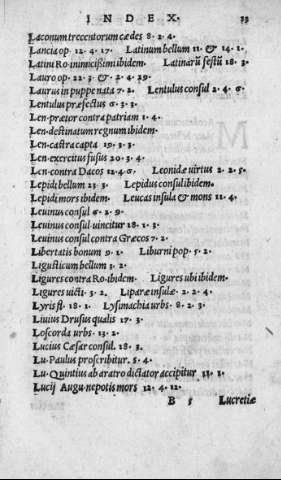 INDEX. 33
Laconum trecentorum cædes 8. 2. 4.
Lancia op. 12. 4. 17. Latinum bellum 11. & 14. 1.
Latini Ro. inimicißimi ibidem. Latinarũ festũ 18. 3.
Lauro op. 22. 3. & 2. 4. 29.
Laurus in puppe nata 7. 2. Lentulus consul 2. 4. 6.
Lentulus præfectus 6. 3. 3.
Len. prætor contra patriam 1. 4.
Len. destinatum regnum ibidem.
Len. castra capta 19. 3. 3.
Len. exercitus fusus 20. 3. 4.
Len. contra Dacos 12. 4. 6. Leonidæ virtus 2. 2. 5.
Lepidi bellum 23. 3. Lepidus consul ibidem.
Lepidi mors ibidem. Leucas insula & mons 11. 4.
Leuinus consul 6. 2. 9.
Leuinus consul uincitur 18. 1. 3.
Leuinus consul contra Græcos 7. 2.
Libertatis bonum 9. 1. Liburni pop. 5. 2.
Ligusticum bellum 3. 2.
Ligures contra Ro. ibidem. Ligures ubi ibidem.
Ligures uicti 3. 2. Liparæ insulæ 2. 2. 4.
Lyris fl. 18. 1. Lysimachia urbs. 8. 2. 3.
Liuius Drusus qualis 17. 3.
Loscorda urbs. 13. 2.
Lucius Cæsar consul. 18. 3.
Lu. Paulus proscribitur. 5. 4.
Lu. Quintius ab aratro dictator accipitur 11. 1.
Lucij Augu. nepotis mors 12. 4. 12.
B 5 Lucretiæ